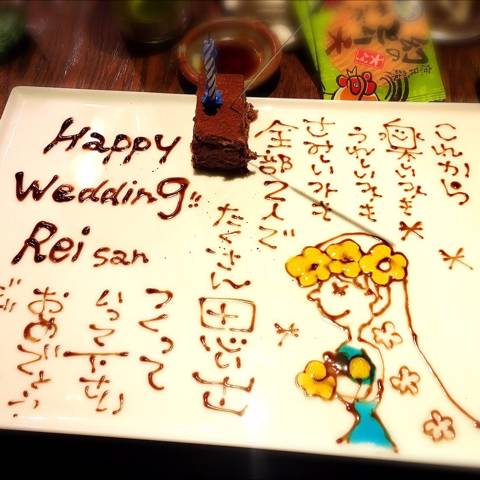 Happy
Wedding!!
Rei san
これから
楽しいとき
うれしいとき
さみしいとき
全部2人で
たくさん思い出
つくって
いって下さい
おめでとう